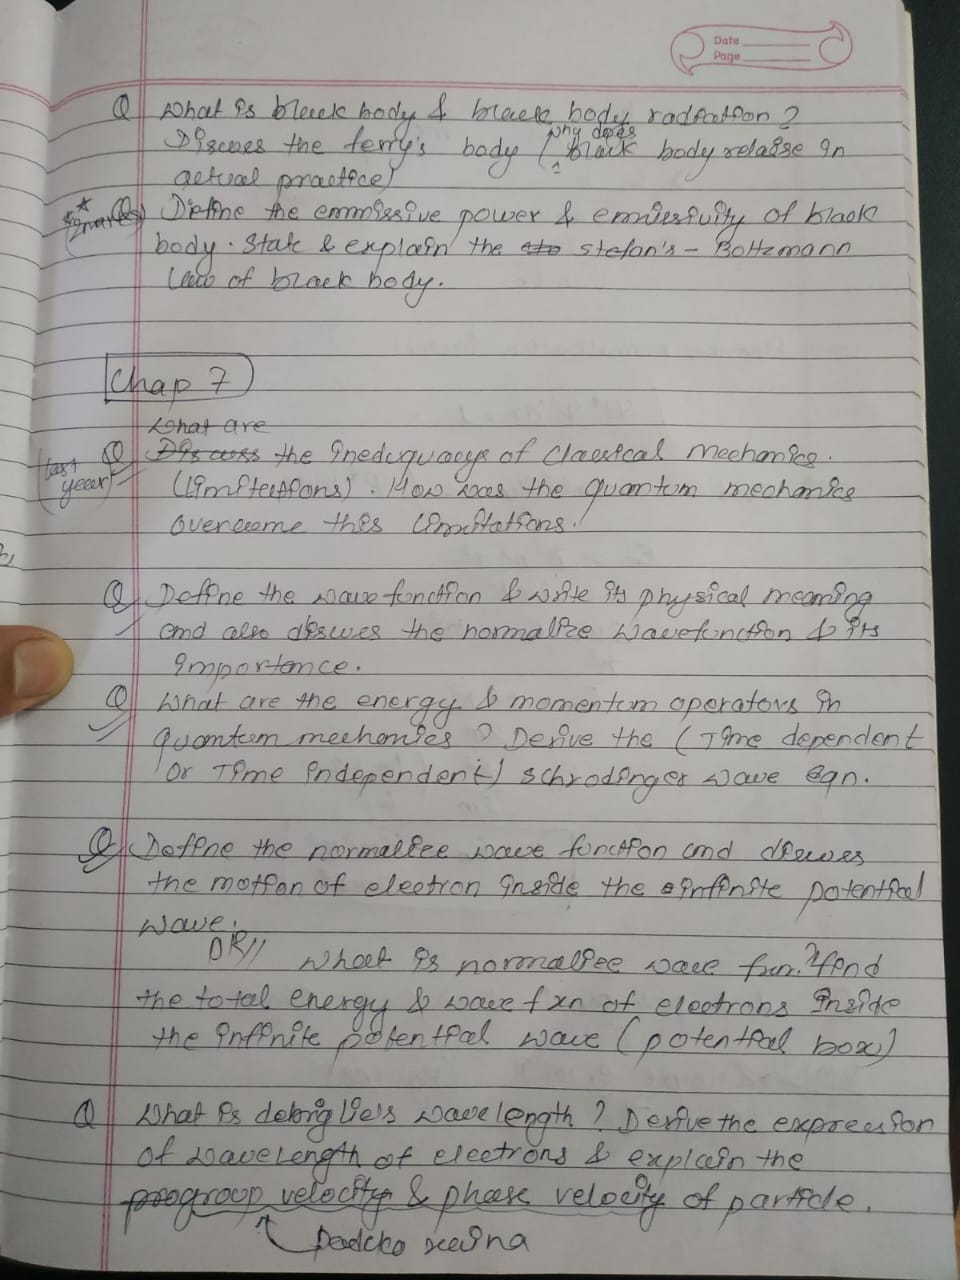 Date
Page
Q What is black body & black body radiation?
Discuss the ferry's body (why does black body relaise in
actual practice)
** (2 mark) Q Define the emmissive power & emissivity of black
body. State & explain the stefan's - Boltzmann
law of black body.
Chap 7
What are
(last year) Q Discuss the inedequacys of classical mechanics.
(limitations). How does the quantum mechanics
overcome this limitations.
Q Define the wave function & write its physical meaning
and also discuss the normalize wavefunction & its
importance.
Q What are the energy & momentum operators in
quantum mechanics? Derive the (Time dependent
or Time independent) schrodinger wave eqn.
Q Define the normalize wave function and discuss
the motion of electron inside the infinite potential
wave.
OR// What is normalize wave fxn.? find
the total energy & wave fxn of electrons inside
the infinite potential wave (potential box)
Q What is debroglie's wavelength? Derive the expression
of wavelength of electrons & explain the
group velocity & phase velocity of particle.